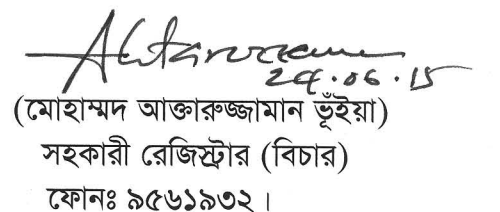 Aktaruzzaman
24.06.15
(মোহাম্মদ আক্তারুজ্জামান ভূঁইয়া)
সহকারী রেজিস্ট্রার (বিচার)
ফোনঃ ৯৫৬১৯৩২ ।